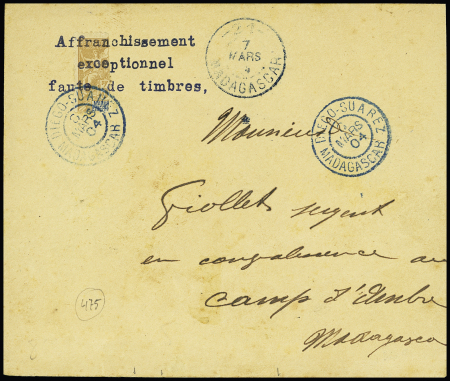 Affranchissement
exceptionnel
faute de timbres,
7
MARS
MADAGASCAR
DIEGO-SUAREZ
MARS
04
MADAGASCAR
DIEGO-SUAREZ
MARS
04
MADAGASCAR
Monsieur
Giollet sergent
en convalescence au
camp d'Ambre
Madagascar
475